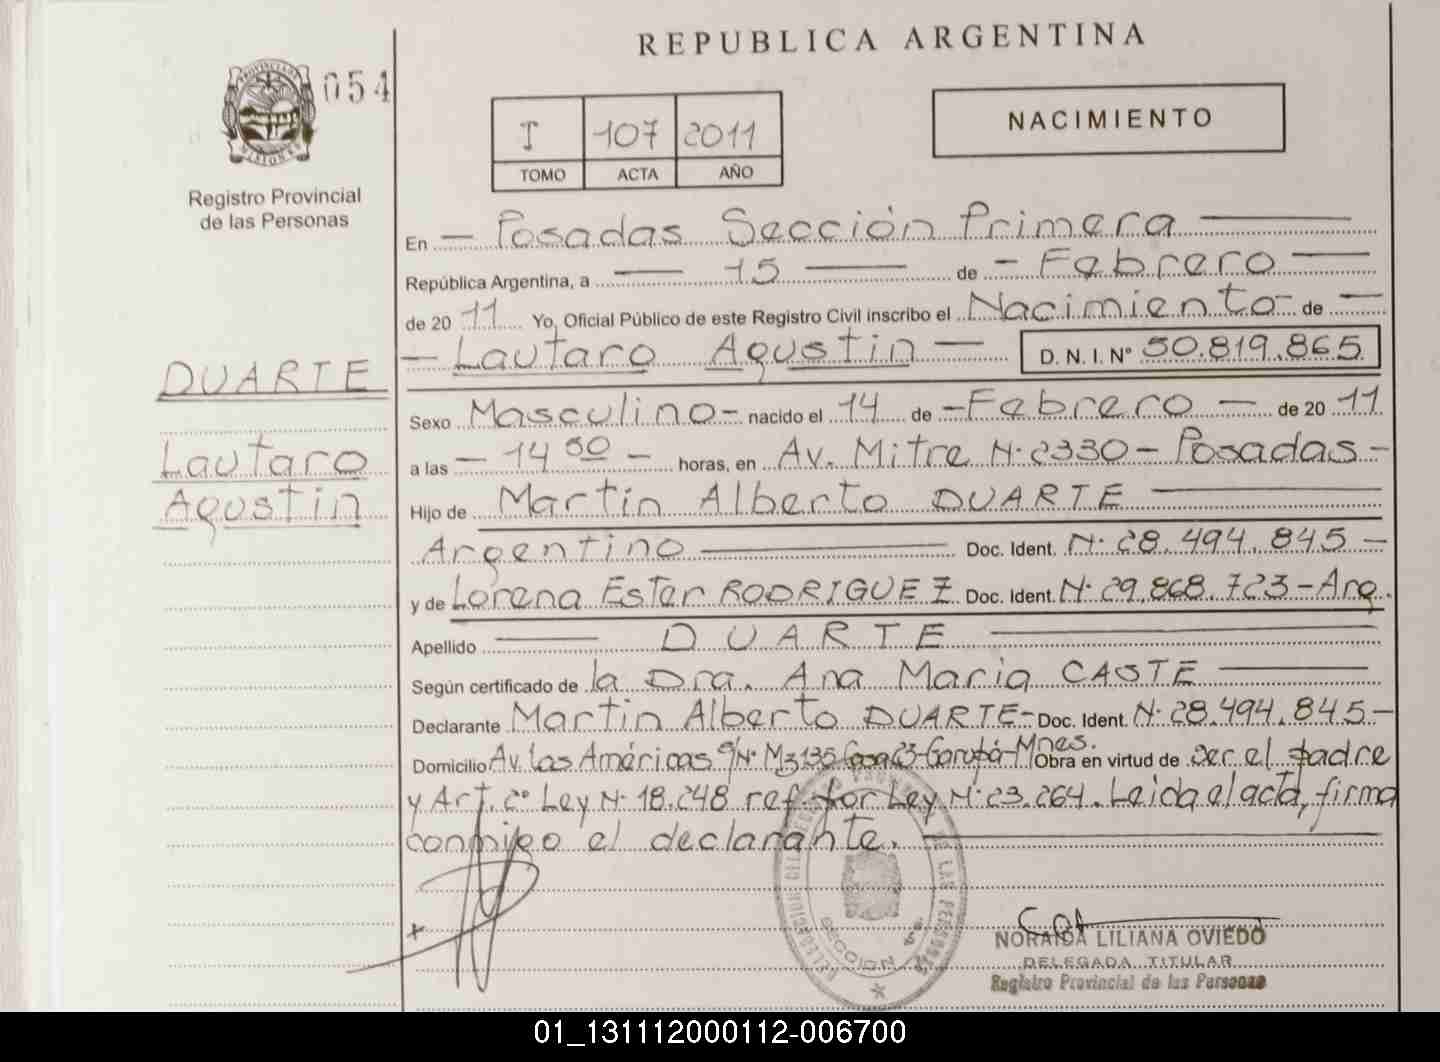 REPUBLICA ARGENTINA
054
I 107 2011
TOMO ACTA AÑO
NACIMIENTO
Registro Provincial
de las Personas
En - Posadas Sección Primera
República Argentina, a - 15 - de - Febrero -
de 2011 Yo, Oficial Público de este Registro Civil inscribo el Nacimiento - de -
- Lautaro Agustin - D. N. I. Nº 50.819.865
DUARTE
Lautaro
Agustin
Sexo Masculino - nacido el 14 de - Febrero - de 2011
a las - 14 50 - horas, en Av. Mitre N· 2330 - Posadas -
Hijo de Martin Alberto DUARTE
Argentino - Doc. Ident. N· 28.494.845 -
y de Lorena Ester RODRIGUEZ Doc. Ident. N· 29.868.723 - Arg.
Apellido - DUARTE -
Según certificado de la Dra. Ana Maria CASTE -
Declarante Martin Alberto DUARTE - Doc. Ident. N· 28.494.845 -
Domicilio Av. Las Américas S/Nº Mz 135 Casa 23 - Garupá - Mnes. Obra en virtud de ser el padre
y Art. 2º Ley N· 18.248 ref. por Ley N· 23.264. Leida el acta, firma
conmigo el declarante.
DE LAS PERSONAS
SECCION 1ra.
NORAIDA LILIANA OVIEDO
DELEGADA TITULAR
Registro Provincial de las Personas
01_131112000112-006700